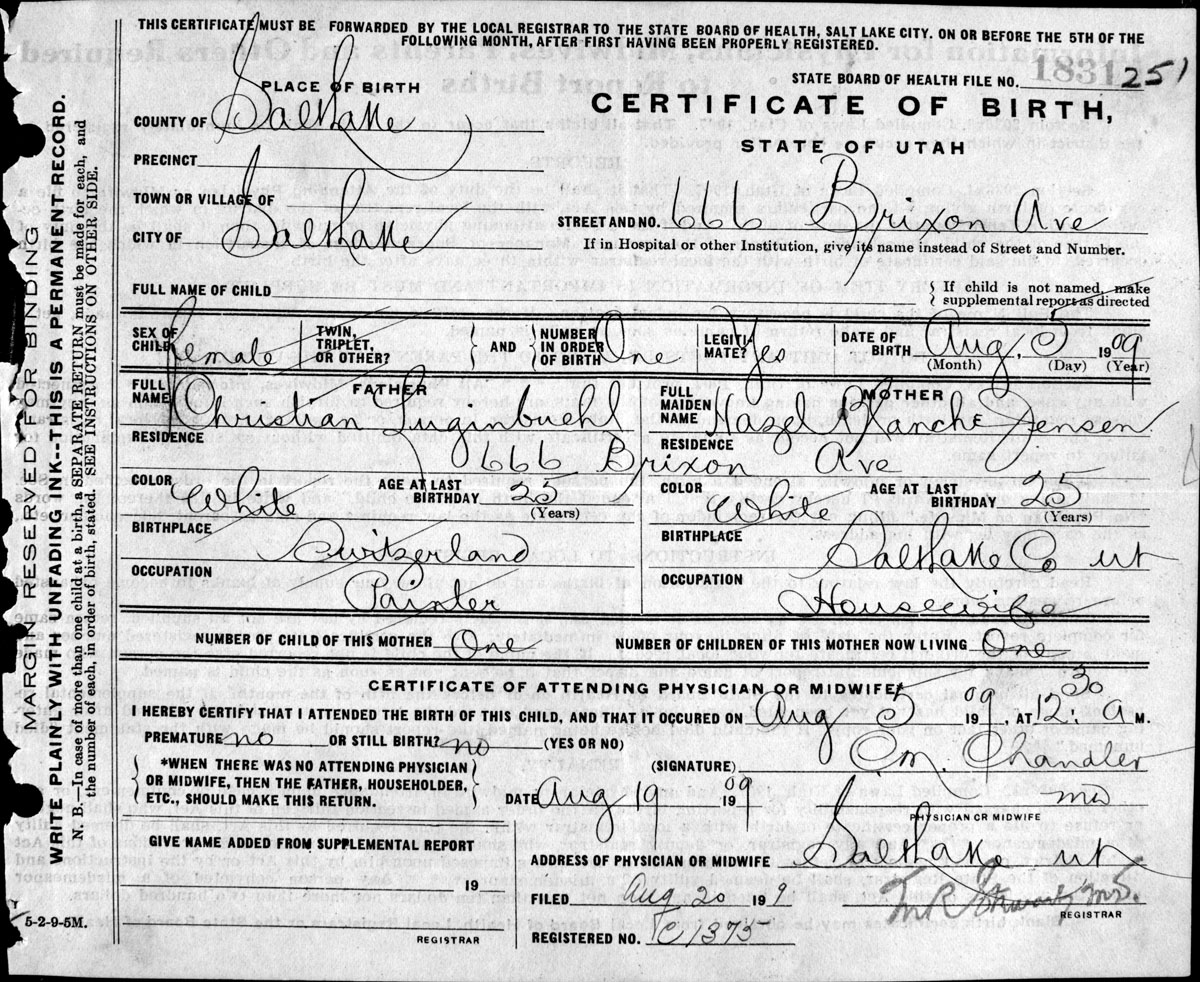 THIS CERTIFICATE MUST BE FORWARDED BY THE LOCAL REGISTRAR TO THE STATE BOARD OF HEALTH, SALT LAKE CITY. ON OR BEFORE THE 5TH OF THE
FOLLOWING MONTH, AFTER FIRST HAVING BEEN PROPERLY REGISTERED.
STATE BOARD OF HEALTH FILE NO. 251
PLACE OF BIRTH
CERTIFICATE OF BIRTH,
COUNTY OF Salt Lake
STATE OF UTAH
PRECINCT
TOWN OR VILLAGE OF
STREET AND NO. 666 Brixon Ave
CITY OF Salt Lake
If in Hospital or other Institution, give its name instead of Street and Number.
FULL NAME OF CHILD { If child is not named, make
supplemental report as directed
SEX OF CHILD Female TWIN, TRIPLET, OR OTHER? } AND { NUMBER IN ORDER OF BIRTH One LEGITIMATE? Yes DATE OF BIRTH Aug. 5 1909
(Month) (Day) (Year)
FATHER
FULL NAME Christian Luginbuehl
MOTHER
FULL MAIDEN NAME Hazel Blanche Jensen
RESIDENCE RESIDENCE
666 Brixon Ave
COLOR White AGE AT LAST BIRTHDAY 25 (Years)
COLOR White AGE AT LAST BIRTHDAY 25 (Years)
BIRTHPLACE Switzerland
BIRTHPLACE Salt Lake Co Ut
OCCUPATION Painter
OCCUPATION Housewife
NUMBER OF CHILD OF THIS MOTHER One NUMBER OF CHILDREN OF THIS MOTHER NOW LIVING One
CERTIFICATE OF ATTENDING PHYSICIAN OR MIDWIFE*
I HEREBY CERTIFY THAT I ATTENDED THE BIRTH OF THIS CHILD, AND THAT IT OCCURED ON Aug 5 1909, AT 12:30 A M.
PREMATURE no OR STILL BIRTH? no (YES OR NO)
{ *WHEN THERE WAS NO ATTENDING PHYSICIAN
OR MIDWIFE, THEN THE FATHER, HOUSEHOLDER,
ETC., SHOULD MAKE THIS RETURN. }
(SIGNATURE) C. M. Chandler
DATE Aug 19 1909 MD
PHYSICIAN OR MIDWIFE
GIVE NAME ADDED FROM SUPPLEMENTAL REPORT
ADDRESS OF PHYSICIAN OR MIDWIFE Salt Lake Ut
19
FILED Aug 20 19 9
REGISTRAR
REGISTRAR
REGISTERED NO. C1375
5-2-9-5M.
MARGIN RESERVED FOR BINDING
WRITE PLAINLY WITH UNFADING INK--THIS IS A PERMANENT RECORD.
N. B.—In case of more than one child at a birth, a SEPARATE RETURN must be made for each, and
the number of each, in order of birth, stated. SEE INSTRUCTIONS ON OTHER SIDE.